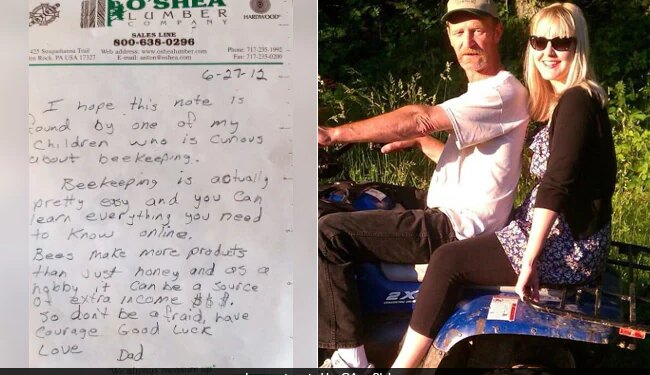 O'SHEA
LUMBER
COMPANY
HARDWOOD
SALES LINE
800-638-0296
425 Susquehanna Trail
en Rock, PA USA 17327
Web address: www.oshealumber.com
Phone: 717-235-1992
Fax: 717-235-0200
6-27-12
I hope this note is
found by one of my
children who is curious
about beekeeping.
Beekeeping is actually
pretty easy and you can
learn everything you need
to know online.
Bees make more products
than just honey and as a
hobby it can be a source
of extra income $$$.
So don't be afraid, have
courage Good Luck
Love Dad
2X